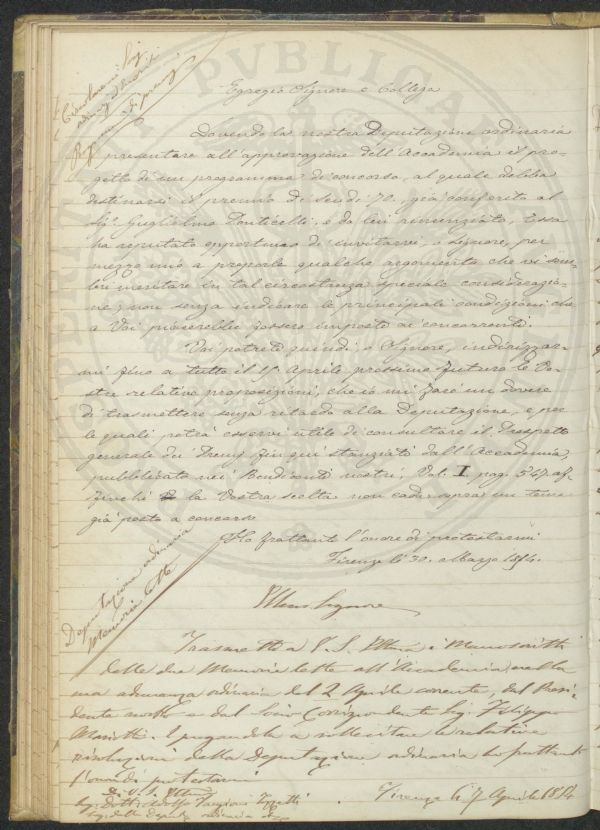 Circolare ai Sig.
Egregio Signore e Collega
Dovendo la nostra Deputazione ordinaria
presentare all'approvazione dell'Accademia il pro-
getto di un programma di concorso, al quale debba
destinarsi il premio di scudi 70, già conferito al
Sig. Guglielmo Ponticelli, e da lui rinunziato, Essa
ha reputato opportuno di invitarvi, o Signore, per
mezzo mio a proporle qualche argomento che vi sem-
bri meritare in tal circostanza speciale considerazio-
ne; non senza indicare le principali condizioni che
a Voi piacerebbe fossero imposte ai concorrenti.
Voi potrete quindi, o Signore, indirizzar-
mi fino a tutto il Aprile prossimo futuro le Vo-
stre relative proposizioni, che io mi farò un dovere
di trasmettere senza ritardo alla Deputazione, e per
le quali potrà esservi utile di consultare il Prospetto
generale dei Premj fin qui stanziati dall'Accademia,
pubblicato nei Rendiconti nostri, Vol. I. pag. 547 af-
finchè la Vostra scelta non cada sopra un tema
già posto a concorso
Ho frattanto l'onore di protestarmi
Firenze li 30. Marzo 1854.
Deputazione ordinaria
Memorie lette
Illmo Signore
Trasmetto a V. S. Illma i Manoscritti
delle due Memorie lette all'Accademia nella
sua adunanza ordinaria del 2 Aprile corrente, dal Presi-
dente nostro e dal Socio Corrispondente Sig. Filippo
Mariotti. E pregandola a sollecitare le relative
risoluzioni della Deputazione ordinaria ho frattanto
l'onore di protestarmi
Di V. S. Illma
Sig. Dott. Adolfo Targioni Tozzetti
Firenze li 7 Aprile 1854
Seg. della Deputaz. ordinaria